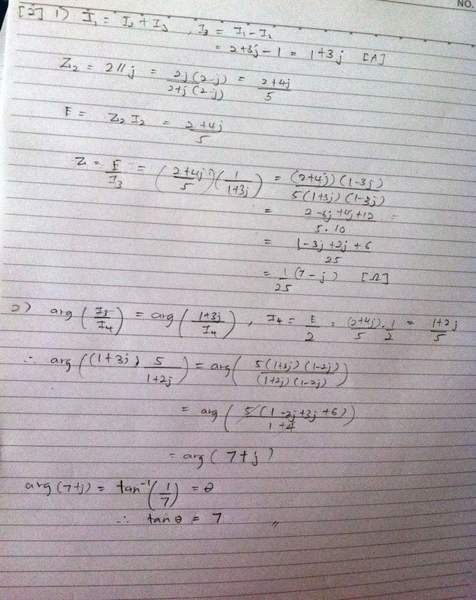 NO.
[2] 1) I₁ = I₂ + I₃ , I₃ = I₁ - I₂
= 2+3j - 1 = 1+3j [A]
Z₂ = 2//j = 2j(2-j) / 2+j(2-j) = 2+4j / 5
E = Z₂ I₂ = 2+4j / 5
Z = E / I₃ = (2+4j / 5)(1 / 1+3j) = (2+4j)(1-3j) / 5(1+3j)(1-3j)
= 2-6j+4j+12 / 5·10
= 1-3j+2j+6 / 25
= 1/25 (7-j) [Ω]
2) arg(I₃ / I₄) = arg(1+3j / I₄) , I₄ = E / 2 = (2+4j) / 5 · 1/2 = 1+2j / 5
∴ arg((1+3j) 5 / 1+2j) = arg(5(1+3j)(1-2j) / (1+2j)(1-2j))
= arg(5(1-2j+3j+6) / 1+4)
= arg(7+j)
arg(7+j) = tan⁻¹(1/7) = θ
∴ tanθ = 7 〃